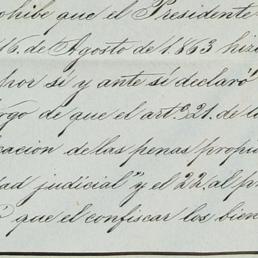 ohibe que el Presidente
16. de Agosto de 1863 hiz
por sí y ante sí declaró
rgo de que el artº. 21. de la
cacion de las penas propia
dad judicial" y el 22. al p
que el confiscar los bien